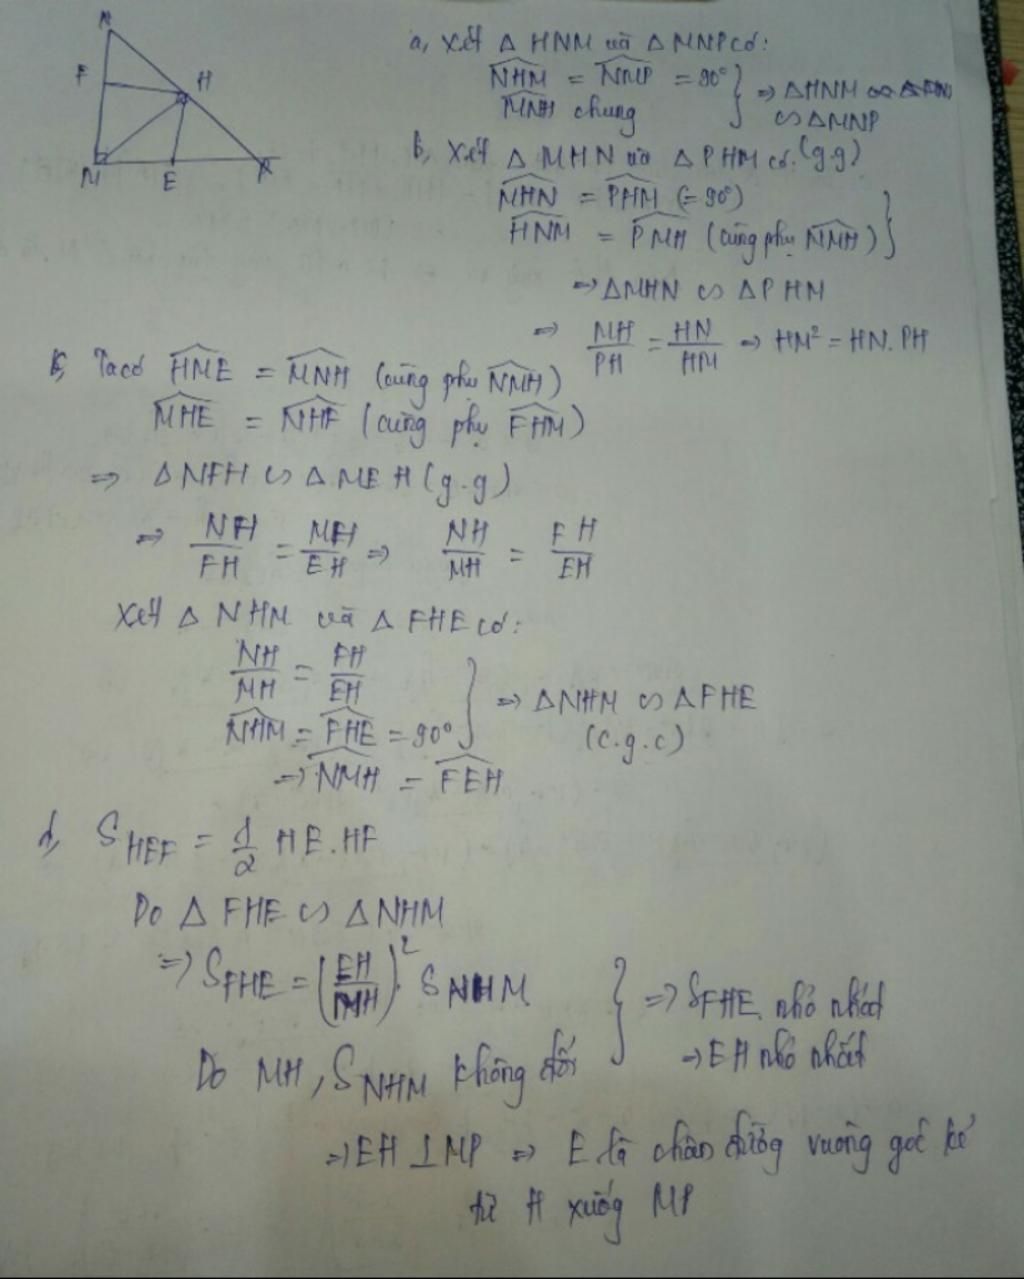 N
F
H
M
E
a, Xét Δ HNM và Δ MNP có:
NHM = NMP = 90°
MNH chung
⇒ ΔHNM ∽
∽ ΔMNP
(g.g)
b, Xét Δ MHN và Δ PHM có:
MHN = PHM (= 90°)
HNM = PMH (cùng phụ NMH)
⇒ ΔMHN ∽ ΔPHM
⇒ MH/PH = HN/HM ⇒ HM² = HN. PH
Ta có HME = MNH (cùng phụ NMH)
MHE = NHF (cùng phụ FHM)
⇒ Δ NFH ∽ Δ MEH (g.g)
⇒ NH/FH = MH/EH ⇒ NH/MH = FH/EH
Xét Δ NHM và Δ FHE có:
NH/MH = FH/EH
NHM = FHE = 90°
⇒ ΔNHM ∽ ΔFHE
(c.g.c)
⇒ NMH = FEH
d, S HEF = 1/2 HE.HF
Do Δ FHE ∽ ΔNHM
⇒ S FHE = (EH/MH)². S NHM
Do MH, S NHM không đổi
⇒ S FHE nhỏ nhất
⇒ EH nhỏ nhất
⇒ EH ⊥ MP ⇒ E là chân đường vuông góc kẻ
từ H xuống MP